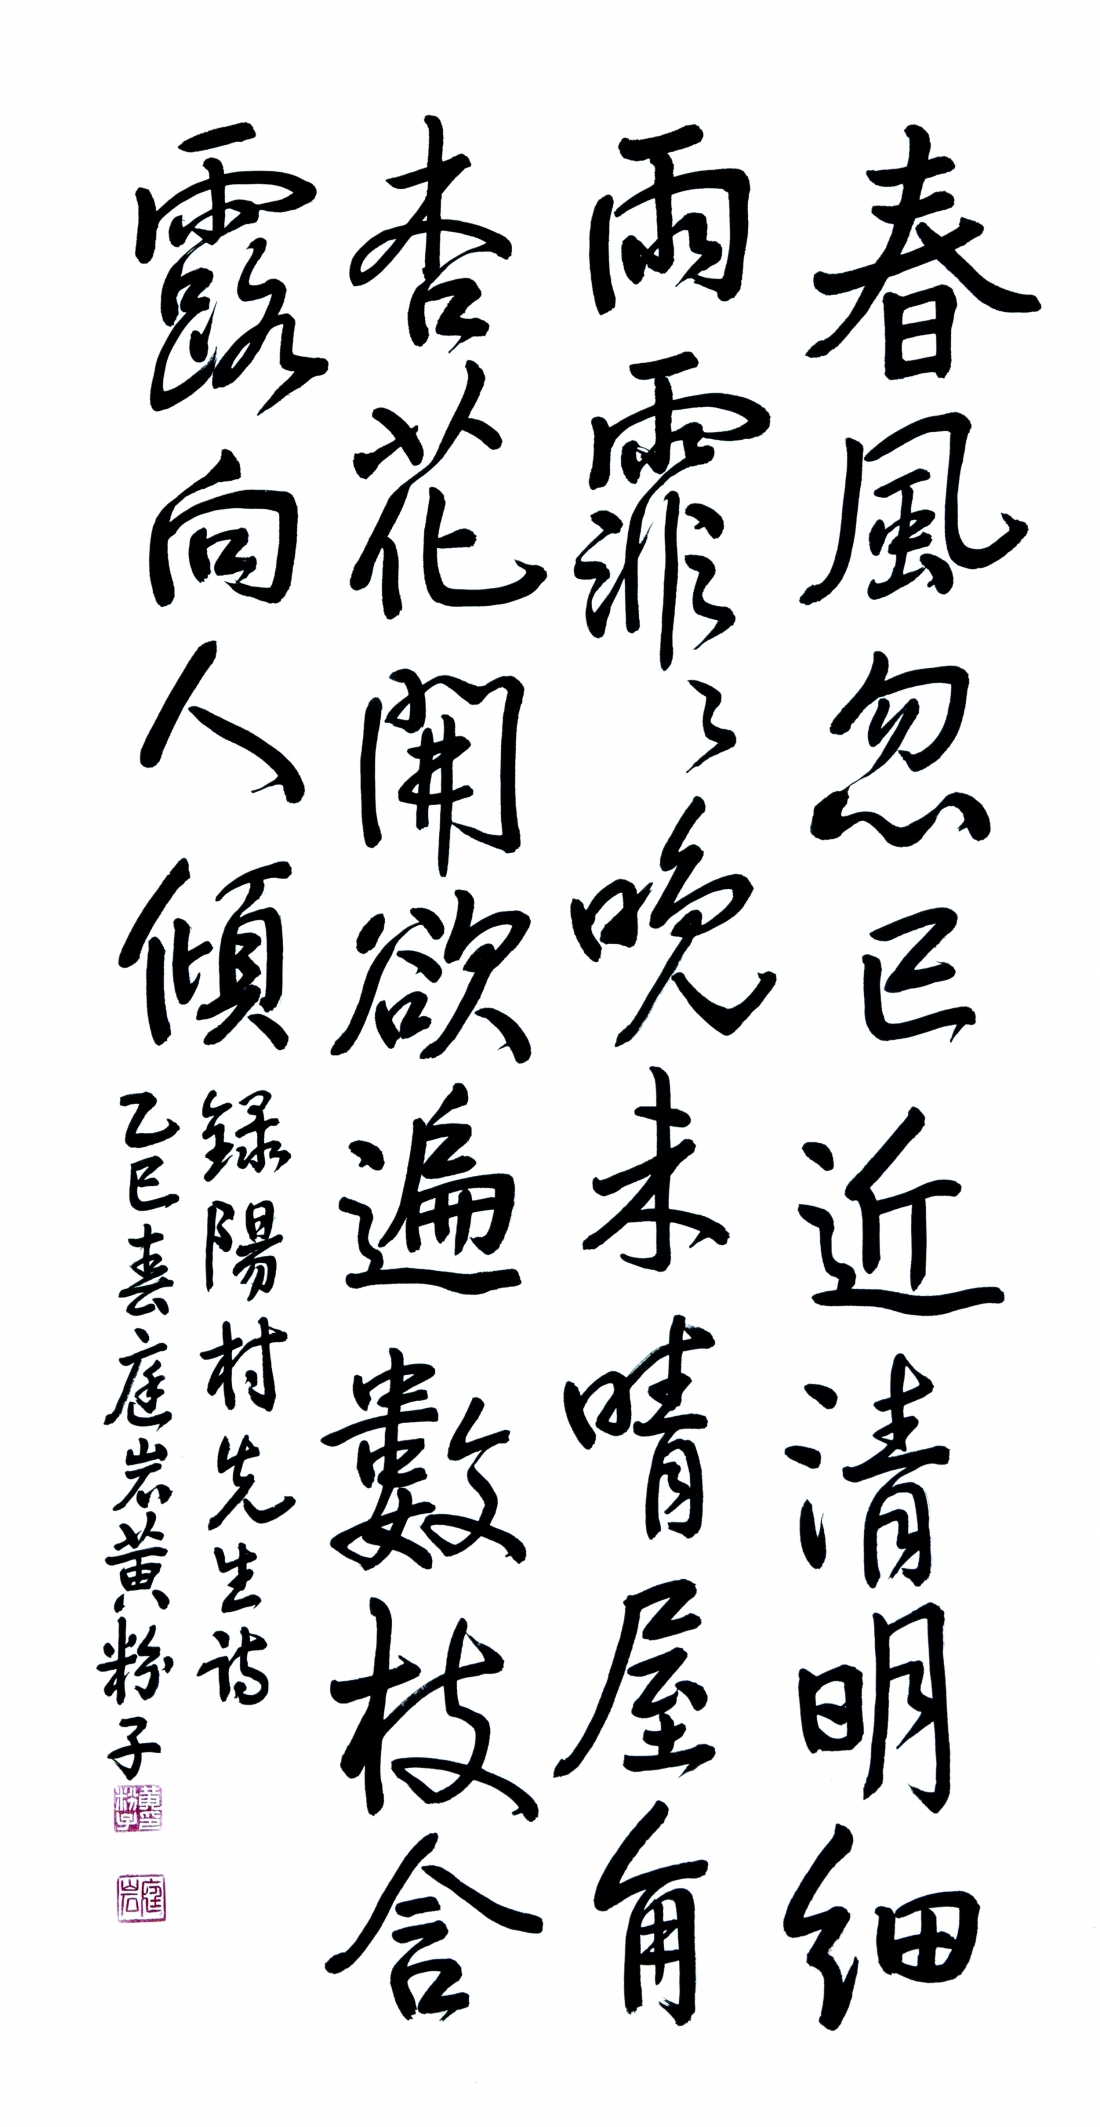 春風忽已近清明細
雨霏〻晚未晴屋角
杏花開欲遍數枝含
露向人傾
錄陽村先生詩
乙巳春庭岩黃粉子
黃粉子印
庭岩